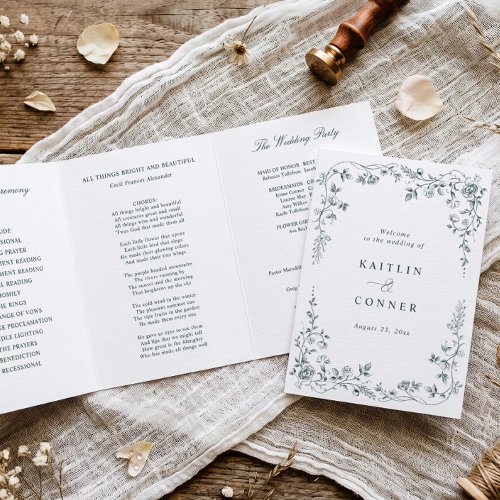 eremony
UDE
SIONAL
G PRAYER
MENT READING
MENT READING
HOMILY
THE RINGS
ANGE OF VOWS
E PROCLAMATION
NDLE LIGHTING
THE PRAYERS
BENEDICTION
RECESSIONAL
ALL THINGS BRIGHT AND BEAUTIFUL
Cecil Frances Alexander
CHORUS:
All things bright and beautiful
All creatures great and small
All things wise and wonderful
'Twas God that made them all
Each little flower that opens
Each little bird that sings
He made their glowing colors
And made their tiny wings
The purple headed mountains
The rivers running by
The sunset and the morning
That brightens up the sky
The cold wind in the winter
The pleasant summer sun
The ripe fruits in the garden
He made them every one
He gave us eyes to see them
And lips that we might tell
How great is the Almighty
Who has made all things well
The Wedding Party
MAID OF HONOR BEST
Rebecca Tollefson Jacob
BRIDESMAIDS
Kirsten
Lauren May
Amy Wilken
Kayla Tollefson
FLOWER GIR
Ava Rock
Pastor Meredith
Welcome
to the wedding of
KAITLIN
&
CONNER
August 23, 20xx